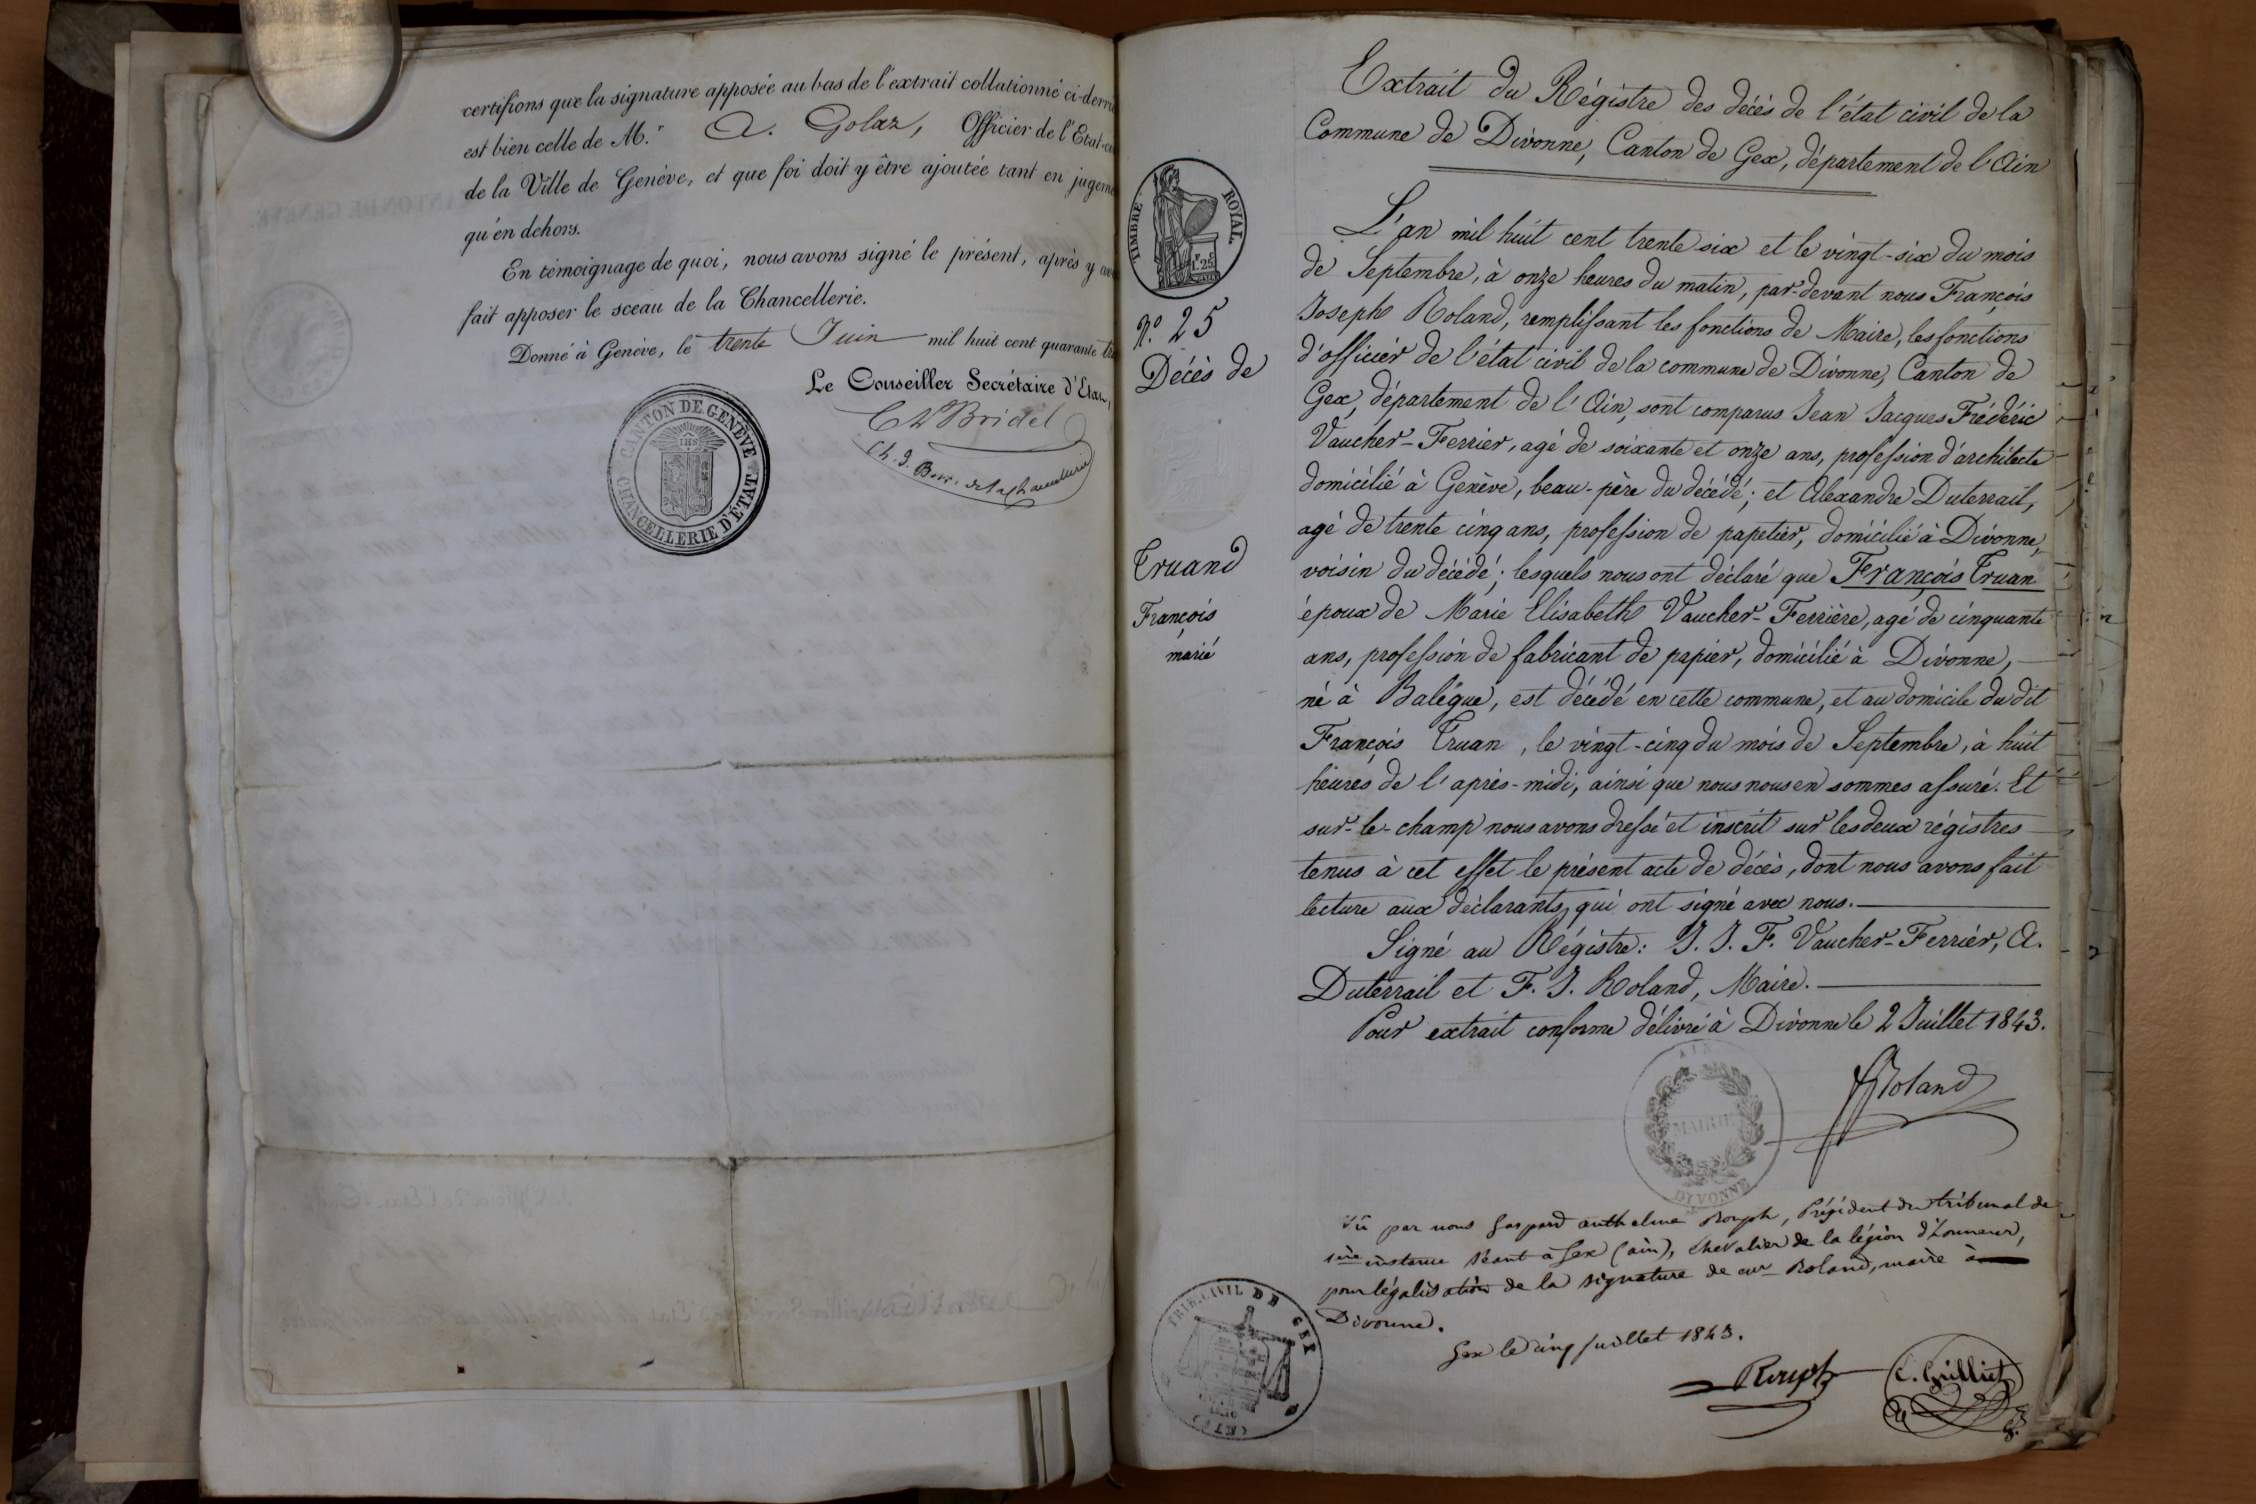 certifions que la signature apposée au bas de l'extrait collationné ci-derri
est bien celle de M.r A. Golaz, Officier de l'Etat-ci
de la Ville de Genève, et que foi doit y être ajoutée tant en jugeme
qu'en dehors.
En témoignage de quoi, nous avons signé le présent, après y av
fait apposer le sceau de la Chancellerie.
Donné à Genève, le trente Juin mil huit cent quarante tr
Le Conseiller Secrétaire d'Etat,
Bridel
CANTON DE GENÈVE
CHANCELLERIE D'ÉTAT
IHS
Extrait du Régistre des décès de l'état civil de la
Commune de Divonne, Canton de Gex, département de l'Ain
TIMBRE ROYAL
N.o 25
Décès de
Truand
François
marié
L'an mil huit cent trente six et le vingt-six du mois
de Septembre, à onze heures du matin, par-devant nous François
Joseph Roland, remplissant les fonctions de Maire, les fonctions
d'officier de l'état civil de la commune de Divonne, Canton de
Gex, département de l'Ain, sont comparus Jean Jacques Frédéric
Vaucher-Ferrier, agé de soixante et onze ans, profession d'architecte
domicilié à Genève, beau-père du décédé; et Alexandre Duterrail,
agé de trente cinq ans, profession de papetier, domicilié à Divonne,
voisin du décédé; lesquels nous ont déclaré que François Truan
époux de Marie Elisabeth Vaucher-Ferrière, agé de cinquante
ans, profession de fabricant de papier, domicilié à Divonne,
né à Balégue, est décédé en cette commune, et au domicile du dit
François Truan, le vingt-cinq du mois de Septembre, à huit
heures de l'après-midi, ainsi que nous nous en sommes assuré. Et
sur-le-champ nous avons dressé et inscrit sur les deux régistres
tenus à cet effet le présent acte de décès, dont nous avons fait
lecture aux déclarants, qui ont signé avec nous.
Signé au Régistre: J. J. F. Vaucher-Ferrier, A.
Duterrail et F. J. Roland, Maire.
Pour extrait conforme délivré à Divonne le 2 Juillet 1843.
Roland
AIN
MAIRIE
DIVONNE
Vu par nous Gaspard anthelme Rouph, Président du tribunal de
1ère instance séant à Gex (ain), chevalier de la légion d'honneur,
pour légalisation de la signature de mr Roland, maire à
Divonne.
Gex le cinq juillet 1843.
TRIB. CIVIL DE GEX
Rouph
C. Guilliet